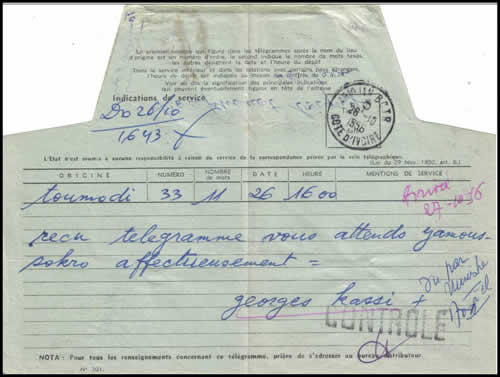 Le premier nombre qui figure dans les télégrammes après le nom du lieu
d'origine est un numéro d'ordre, le second indique le nombre de mots taxés,
les autres désignent la date et l'heure du dépôt.
Dans le service intérieur et dans les relations avec certains pays étrangers,
l'heure de dépôt est indiquée au moyen des chiffres de 0 à 24.
Voir au dos la signification des principales indications
qui peuvent éventuellement figurer en tête de l'adresse.
Indications de service
1643
CÔTE D'IVOIRE
L'État n'est soumis à aucune responsabilité à raison de service de la correspondance privée par la voie télégraphique. (Loi du 29 Nov. 1850, art. 6.)
ORIGINE NUMÉRO NOMBRE de mots DATE HEURE MENTIONS DE SERVICE
toumodi 33 11 26 1600
Arrivé
27-10-56
recu telegramme vous attends yamous-
sokro affectueusement =
georges kassi +
CONTRÔLE
NOTA : Pour tous les renseignements concernant ce télégramme, prière de s'adresser au bureau distributeur.
N° 701.